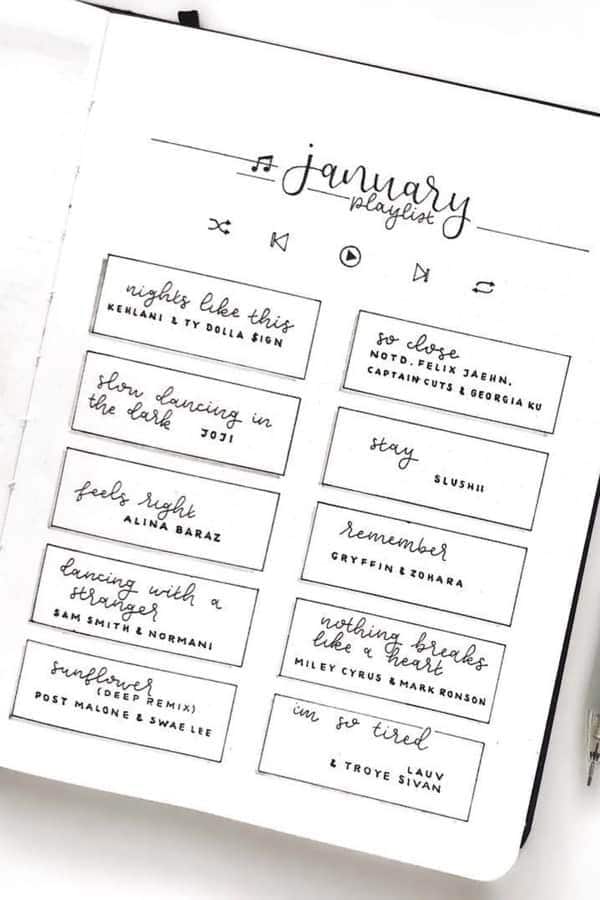 january
playlist
nights like this
KEHLANI & TY DOLLA $IGN
slow dancing in
the dark JOJI
feels right
ALINA BARAZ
dancing with a
stranger
SAM SMITH & NORMANI
sunflower
(DEEP REMIX)
POST MALONE & SWAE LEE
so close
NOTD, FELIX JAEHN,
CAPTAIN CUTS & GEORGIA KU
stay
SLUSHII
remember
GRYFFIN & ZOHARA
nothing breaks
like a heart
MILEY CYRUS & MARK RONSON
im so tired
LAUV
& TROYE SIVAN